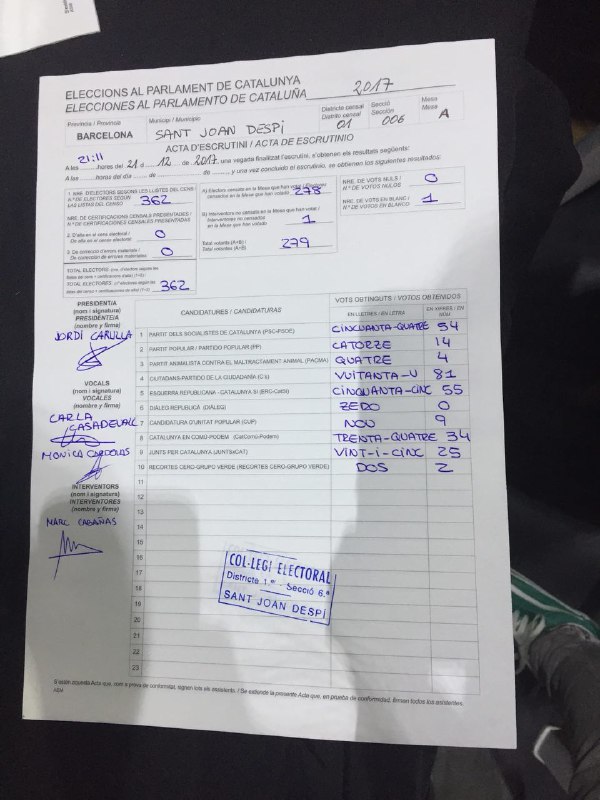 ELECCIONS AL PARLAMENT DE CATALUNYA
ELECCIONES AL PARLAMENTO DE CATALUÑA 2017
Província / Provincia
BARCELONA
Municipi / Municipio
SANT JOAN DESPÍ
Districte censal
Distrito censal
01
Secció
Sección
006
Mesa
Mesa
A
ACTA D'ESCRUTINI / ACTA DE ESCRUTINIO
A les 21:11 hores del 21 d 12 de 2017, una vegada finalitzat l'escrutini, s'obtenen els resultats següents:
A las ......horas del día...... de ...... de ......, y una vez concluido el escrutinio, se obtienen los siguientes resultados:
1. NRE. D'ELECTORS SEGONS LES LLISTES DEL CENS
N.º DE ELECTORES SEGÚN
LAS LISTAS DEL CENSO 362
NRE. DE CERTIFICACIONS CENSALS PRESENTADES /
N.º DE CERTIFICACIONES CENSALES PRESENTADAS
2. D'alta en el cens electoral /
De alta en el censo electoral 0
3. De correcció d'errors materials /
De corrección de errores materiales 0
TOTAL ELECTORS
TOTAL ELECTORES 362
A) Electors censats en la Mesa que han votat
censados en la Mesa que han votado 278
B) Interventors no censats en la Mesa que han votat /
Interventores no censados en la Mesa que han votado 1
Total votants (A+B) /
Total votantes (A+B) 279
NRE. DE VOTS NULS /
N.º DE VOTOS NULOS 0
NRE. DE VOTS EN BLANC /
N.º DE VOTOS EN BLANCO 1
PRESIDENT/A
(nom i signatura)
PRESIDENTE/A
(nombre y firma)
JORDI CARULLA
VOCALS
(nom i signatura)
VOCALES
(nombre y firma)
CARLA
CASADEVALL
MONICA
INTERVENTORS
(nom i signatura)
INTERVENTORES
(nombre y firma)
MARC CABAÑAS
CANDIDATURES / CANDIDATURAS
VOTS OBTINGUTS / VOTOS OBTENIDOS
EN LLETRES / EN LETRA
EN XIFRES / EN NÚM.
1 PARTIT DELS SOCIALISTES DE CATALUNYA (PSC-PSOE) CINCUANTA-QUATRE 54
2 PARTIT POPULAR / PARTIDO POPULAR (PP) CATOZZE 14
3 PARTIT ANIMALISTA CONTRA EL MALTRACTAMENT ANIMAL (PACMA) QUATRE 4
4 CIUTADANS-PARTIDO DE LA CIUDADANÍA (C's) VUITANTA-U 81
5 ESQUERRA REPUBLICANA - CATALUNYA SÍ (ERC-CatSí) CINQUANTA-CINC 55
6 DIÀLEG REPUBLICÀ (DIÀLEG) ZERO 0
7 CANDIDATURA D'UNITAT POPULAR (CUP) NOU 9
8 CATALUNYA EN COMÚ-PODEM (CatComú-Podem) TRENTA-QUATRE 34
9 JUNTS PER CATALUNYA (JUNTSxCAT) VINT-I-CINC 25
10 RECORTES CERO-GRUPO VERDE (RECORTES CERO-GRUPO VERDE) DOS 2
11
12
13
14
15
16
17
18
19
20
21
22
23
COL·LEGI ELECTORAL
Districte 1er - Secció 6.ª
SANT JOAN DESPÍ
S'estén aquesta Acta que, com a prova de conformitat, signen tots els assistents. / Se extiende la presente Acta que, en prueba de conformidad, firman todos los asistentes.